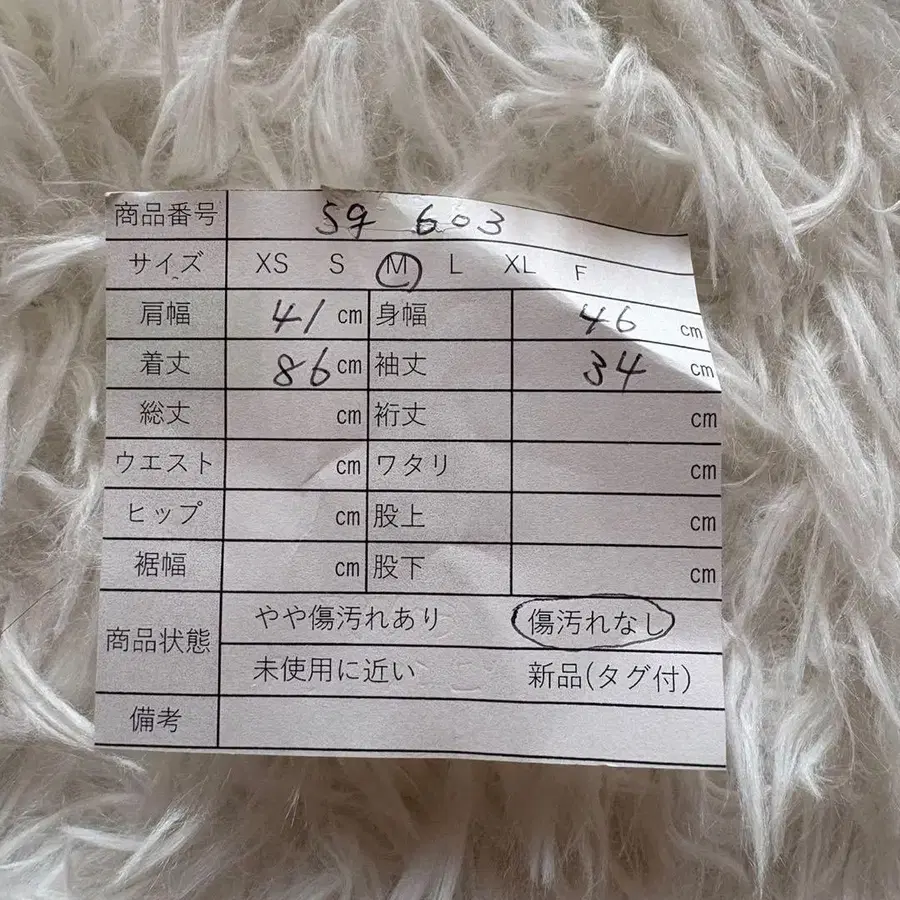 商品番号 59 603
サイズ XS S M L XL F
肩幅 41 cm 身幅 46 cm
着丈 86 cm 袖丈 34 cm
総丈 cm 裄丈 cm
ウエスト cm ワタリ cm
ヒップ cm 股上 cm
裾幅 cm 股下 cm
商品状態 やや傷汚れあり 傷汚れなし
未使用に近い 新品(タグ付)
備考